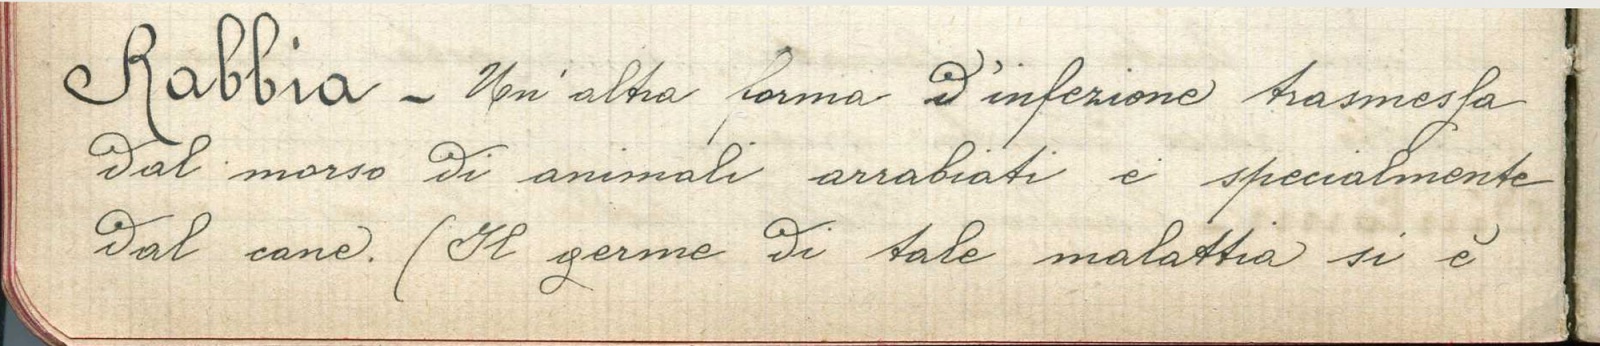 Rabbia - Un'altra forma d'infezione trasmessa
dal morso di animali arrabiati e specialmente
dal cane. (Il germe di tale malattia si è